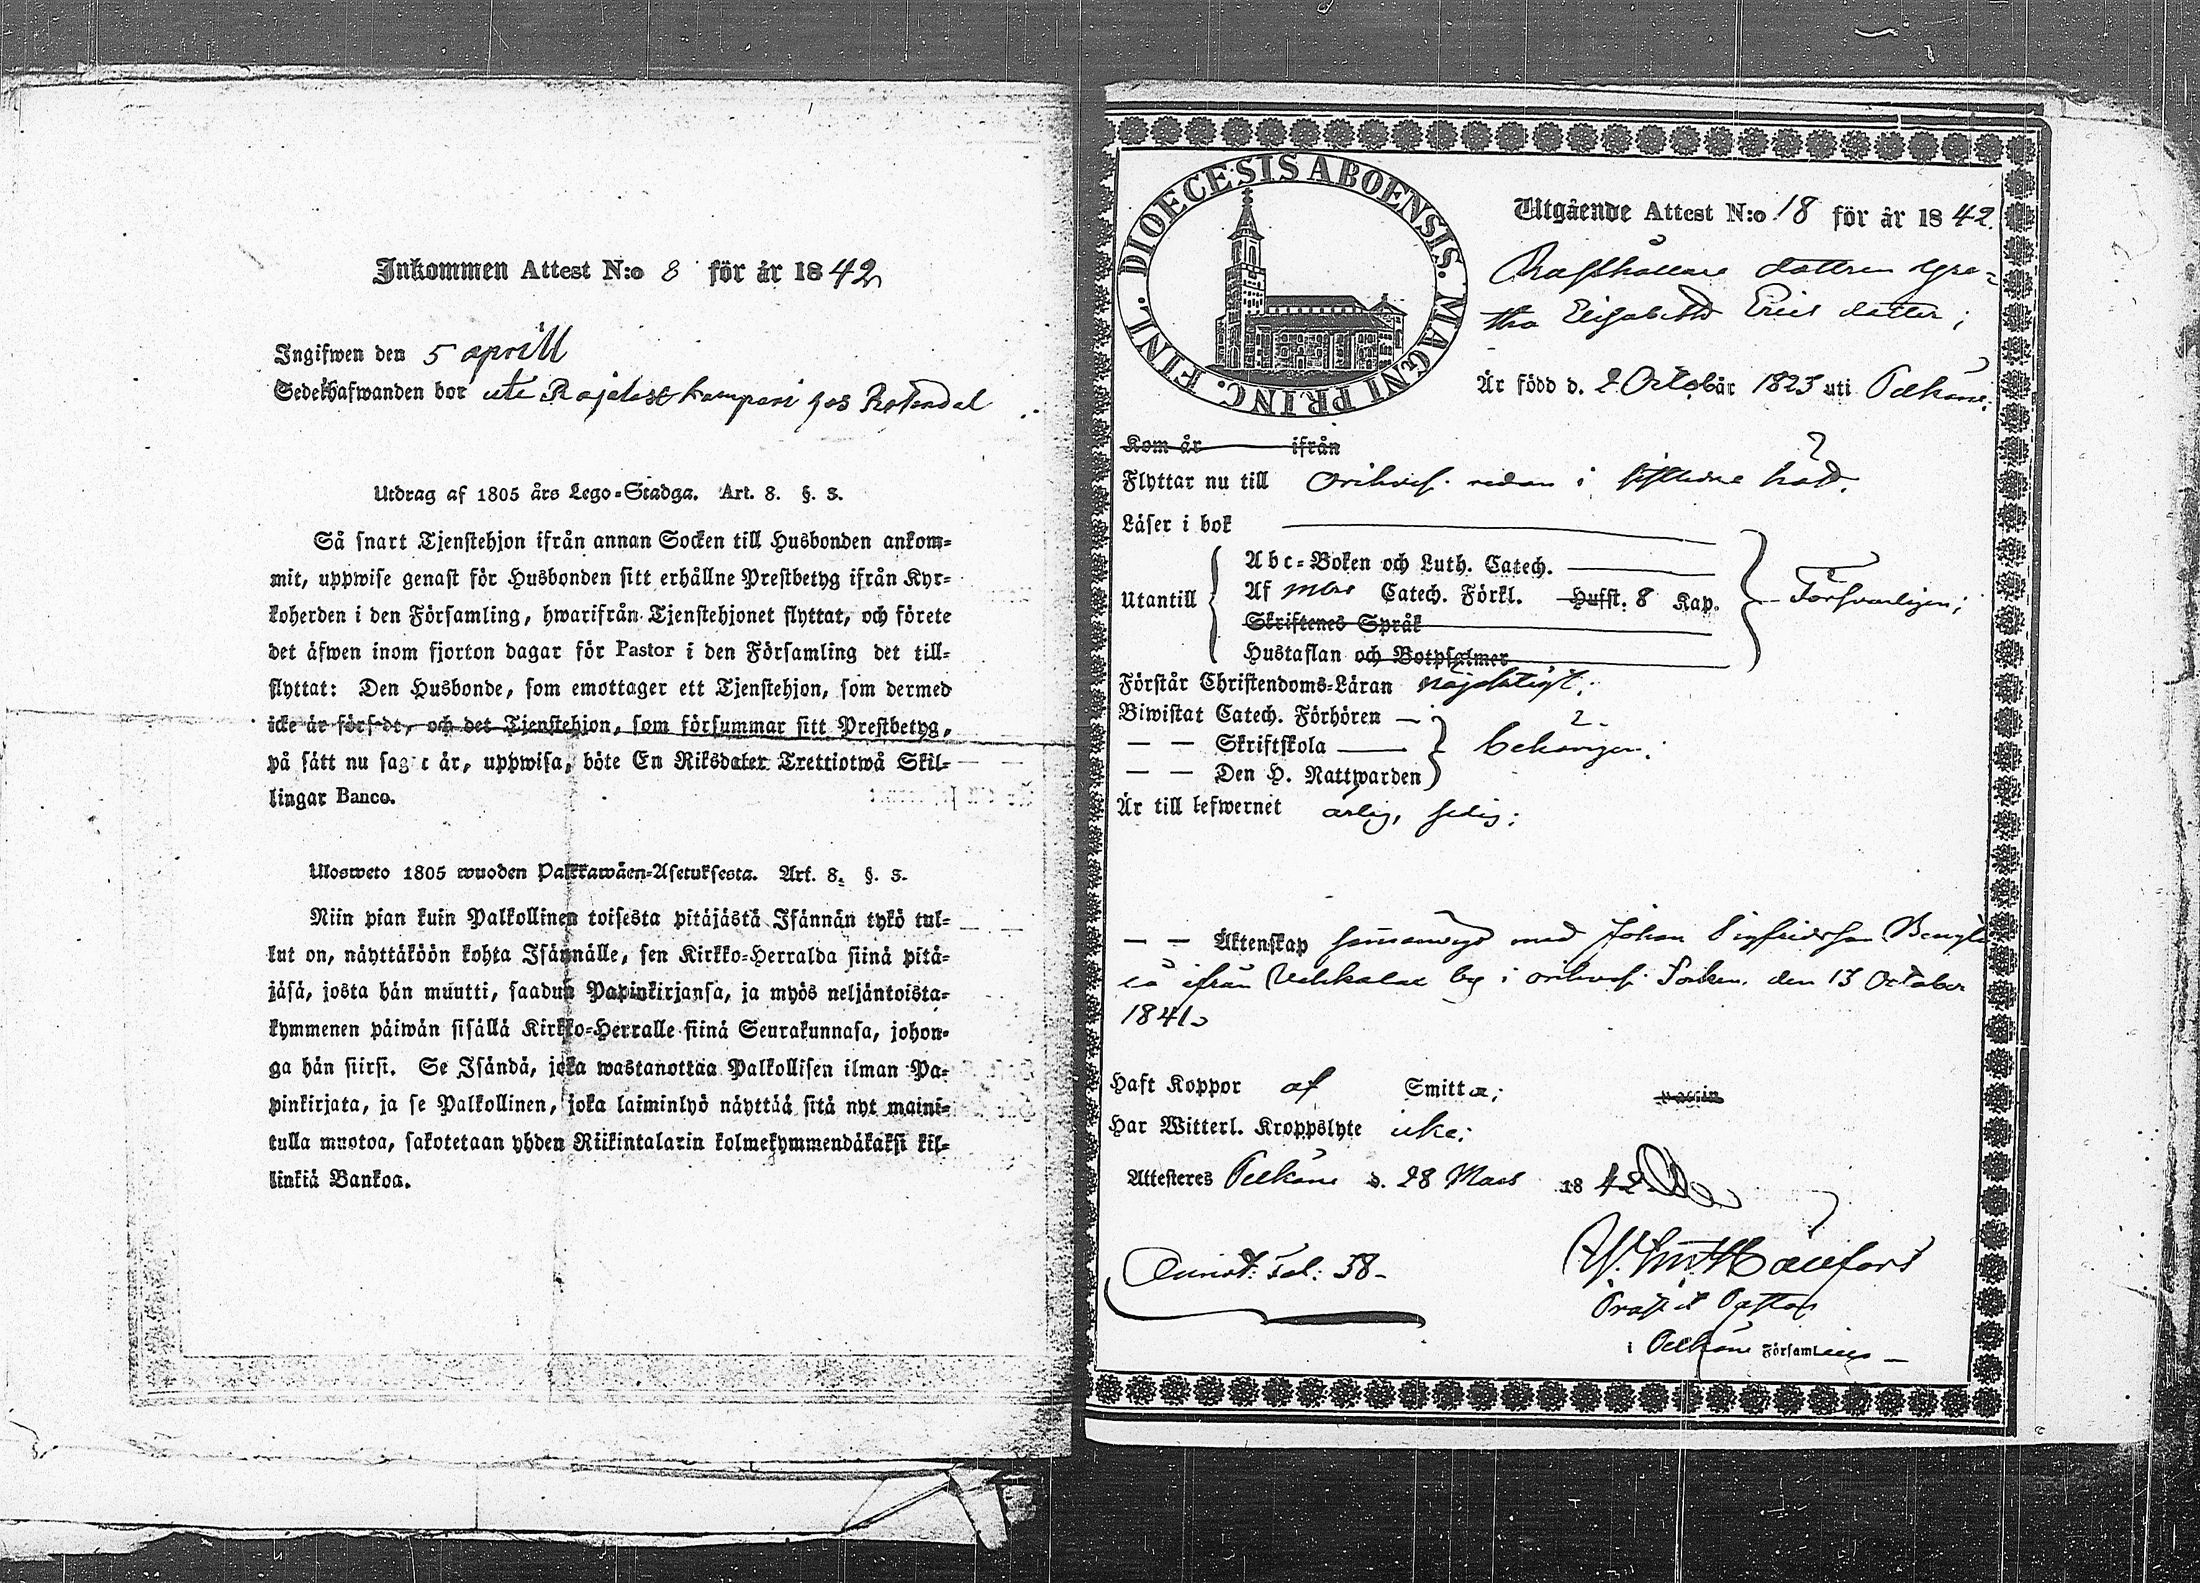 Inkommen Attest N:o 8 för år 1842
Ingifwen den 5 aprill
Sedelhafwanden bor ute
Utdrag af 1805 års Lego-Stadga. Art. 8. §. 3.
Så snart Tjenstehjon ifrån annan Socken till Husbonden ankom-
mit, uppwise genast för Husbonden sitt erhållne Prestbetyg ifrån Kyr-
koherden i den Församling, hwarifrån Tjenstehjonet flyttat, och förete
det äfwen inom fjorton dagar för Pastor i den Församling det till-
flyttat: Den Husbonde, som emottager ett Tjenstehjon, som dermed
icke är försedt, och det Tjenstehjon, som försummar sitt Prestbetyg,
på sätt nu sagdt är, uppwisa, böte En Riksdaler Trettiotwå Skil-
lingar Banco.
Ulosweto 1805 wuoden Palkkawäen-Asetuksesta. Art. 8. §. 3.
Niin pian kuin Palkollinen toisesta pitäjästä Isännän tykö tul-
lut on, näyttäköön kohta Isännälle, sen Kirkko-Herralda siinä pitä-
jäsä, josta hän muutti, saadun Papinkirjansa, ja myös neljäntoista-
kymmenen päiwän sisällä Kirkko-Herralle siinä Seurakunnasa, johon-
ga hän siirsi. Se Isändä, joka wastanottaa Palkollisen ilman Pa-
pinkirjata, ja se Palkollinen, joka laiminlyö näyttää sitä nyt maini-
tulla muotoa, sakotetaan yhden Riikintalarin kolmekymmendäkaksi kil-
linkiä Bankoa.
DIOECESIS ABOENSIS. MAGNI PRINC. FINL.
Utgående Attest N:o 18 för år 1842.
dottren Gre-
tha Elisabeth Ericsdotter;
Är född d. 2 Octob år 1823 uti Pelkäne.
Kom år ifrån
Flyttar nu till Orihvesi redan i höst.
Läser i bok
Abc-Boken och Luth. Catech.
Utantill Af Catech. Förkl. Hufst. 8 Kap. Försvarligen;
Skriftenes Språk
Hustaflan och Botpsalmer
Förstår Christendoms-Läran nöjaktigt;
Biwistat Catech. Förhören
— — Skriftskola behörigen.
— — Den H. Nattwarden
Är till lefwernet ärlig, sedig;
— — Äktenskap med Johan Sigfridsson
ifrån by i Orihvesi Socken den 13 October
1841.
Haft Koppor af Smitta; vaccin
Har Witterl. Kroppslyte icke;
Attesteres Pelkäne d. 28 Mars 1842
Fol: 58
Pastor
i Pelkäne Församling